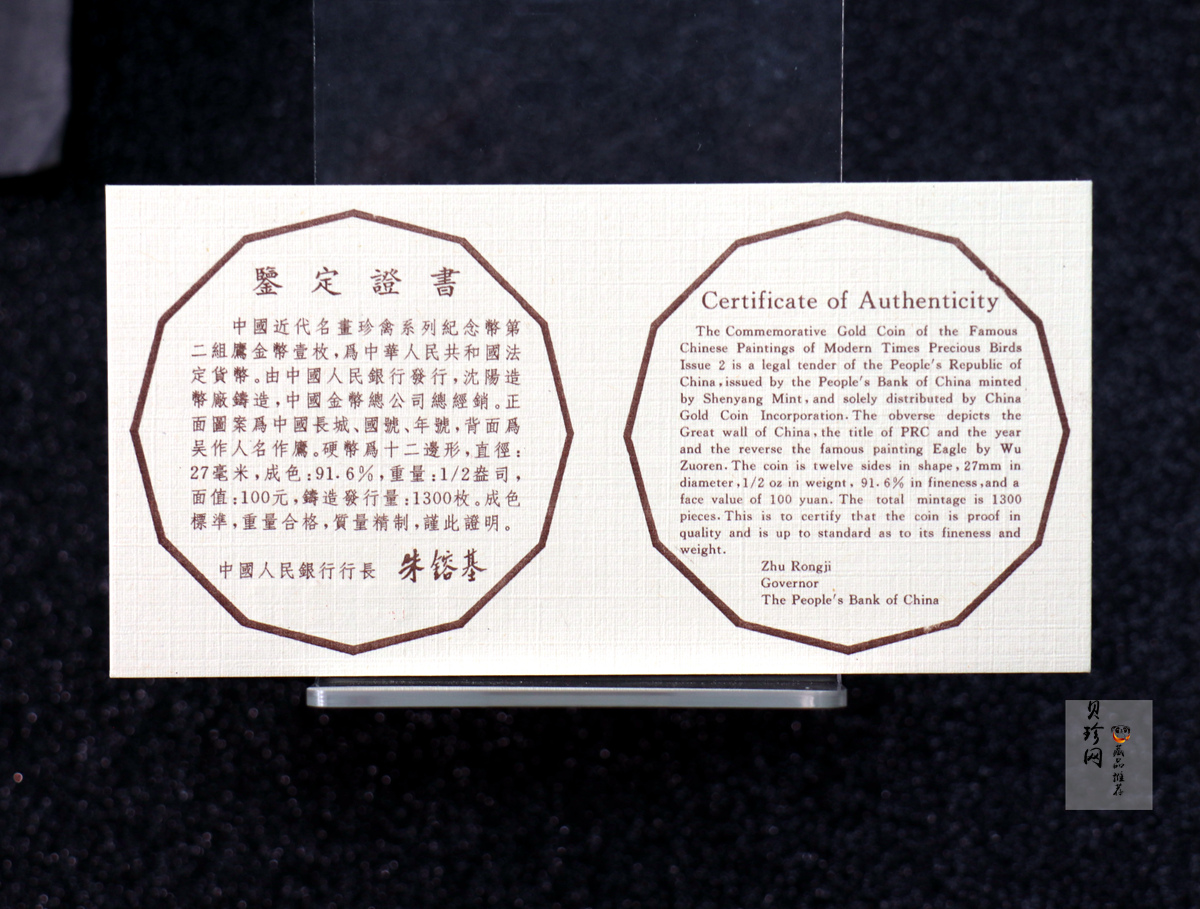 鑒定證書
中國近代名畫珍禽系列紀念幣第
二組鷹金幣壹枚,爲中華人民共和國法
定貨幣。由中國人民銀行發行,沈陽造
幣廠鑄造,中國金幣總公司總經銷。正
面圖案爲中國長城、國號、年號,背面爲
吴作人名作鷹。硬幣爲十二邊形,直徑:
27毫米,成色:91.6%,重量:1/2盎司,
面值:100元,鑄造發行量:1300枚。成色
標準,重量合格,質量精制,謹此證明。
中國人民銀行行長 朱鎔基
Certificate of Authenticity
The Commemorative Gold Coin of the Famous
Chinese Paintings of Modern Times Precious Birds
Issue 2 is a legal tender of the People's Republic of
China,issued by the People's Bank of China minted
by Shenyang Mint,and solely distributed by China
Gold Coin Incorporation.The obverse depicts the
Great wall of China,the title of PRC and the year
and the reverse the famous painting Eagle by Wu
Zuoren.The coin is twelve sides in shape,27mm in
diameter,1/2 oz in weignt, 91.6% in fineness,and a
face value of 100 yuan. The total mintage is 1300
pieces.This is to certify that the coin is proof in
quality and is up to standard as to its fineness and
weight.
Zhu Rongji
Governor
The People's Bank of China
贝珍网
藏品推荐